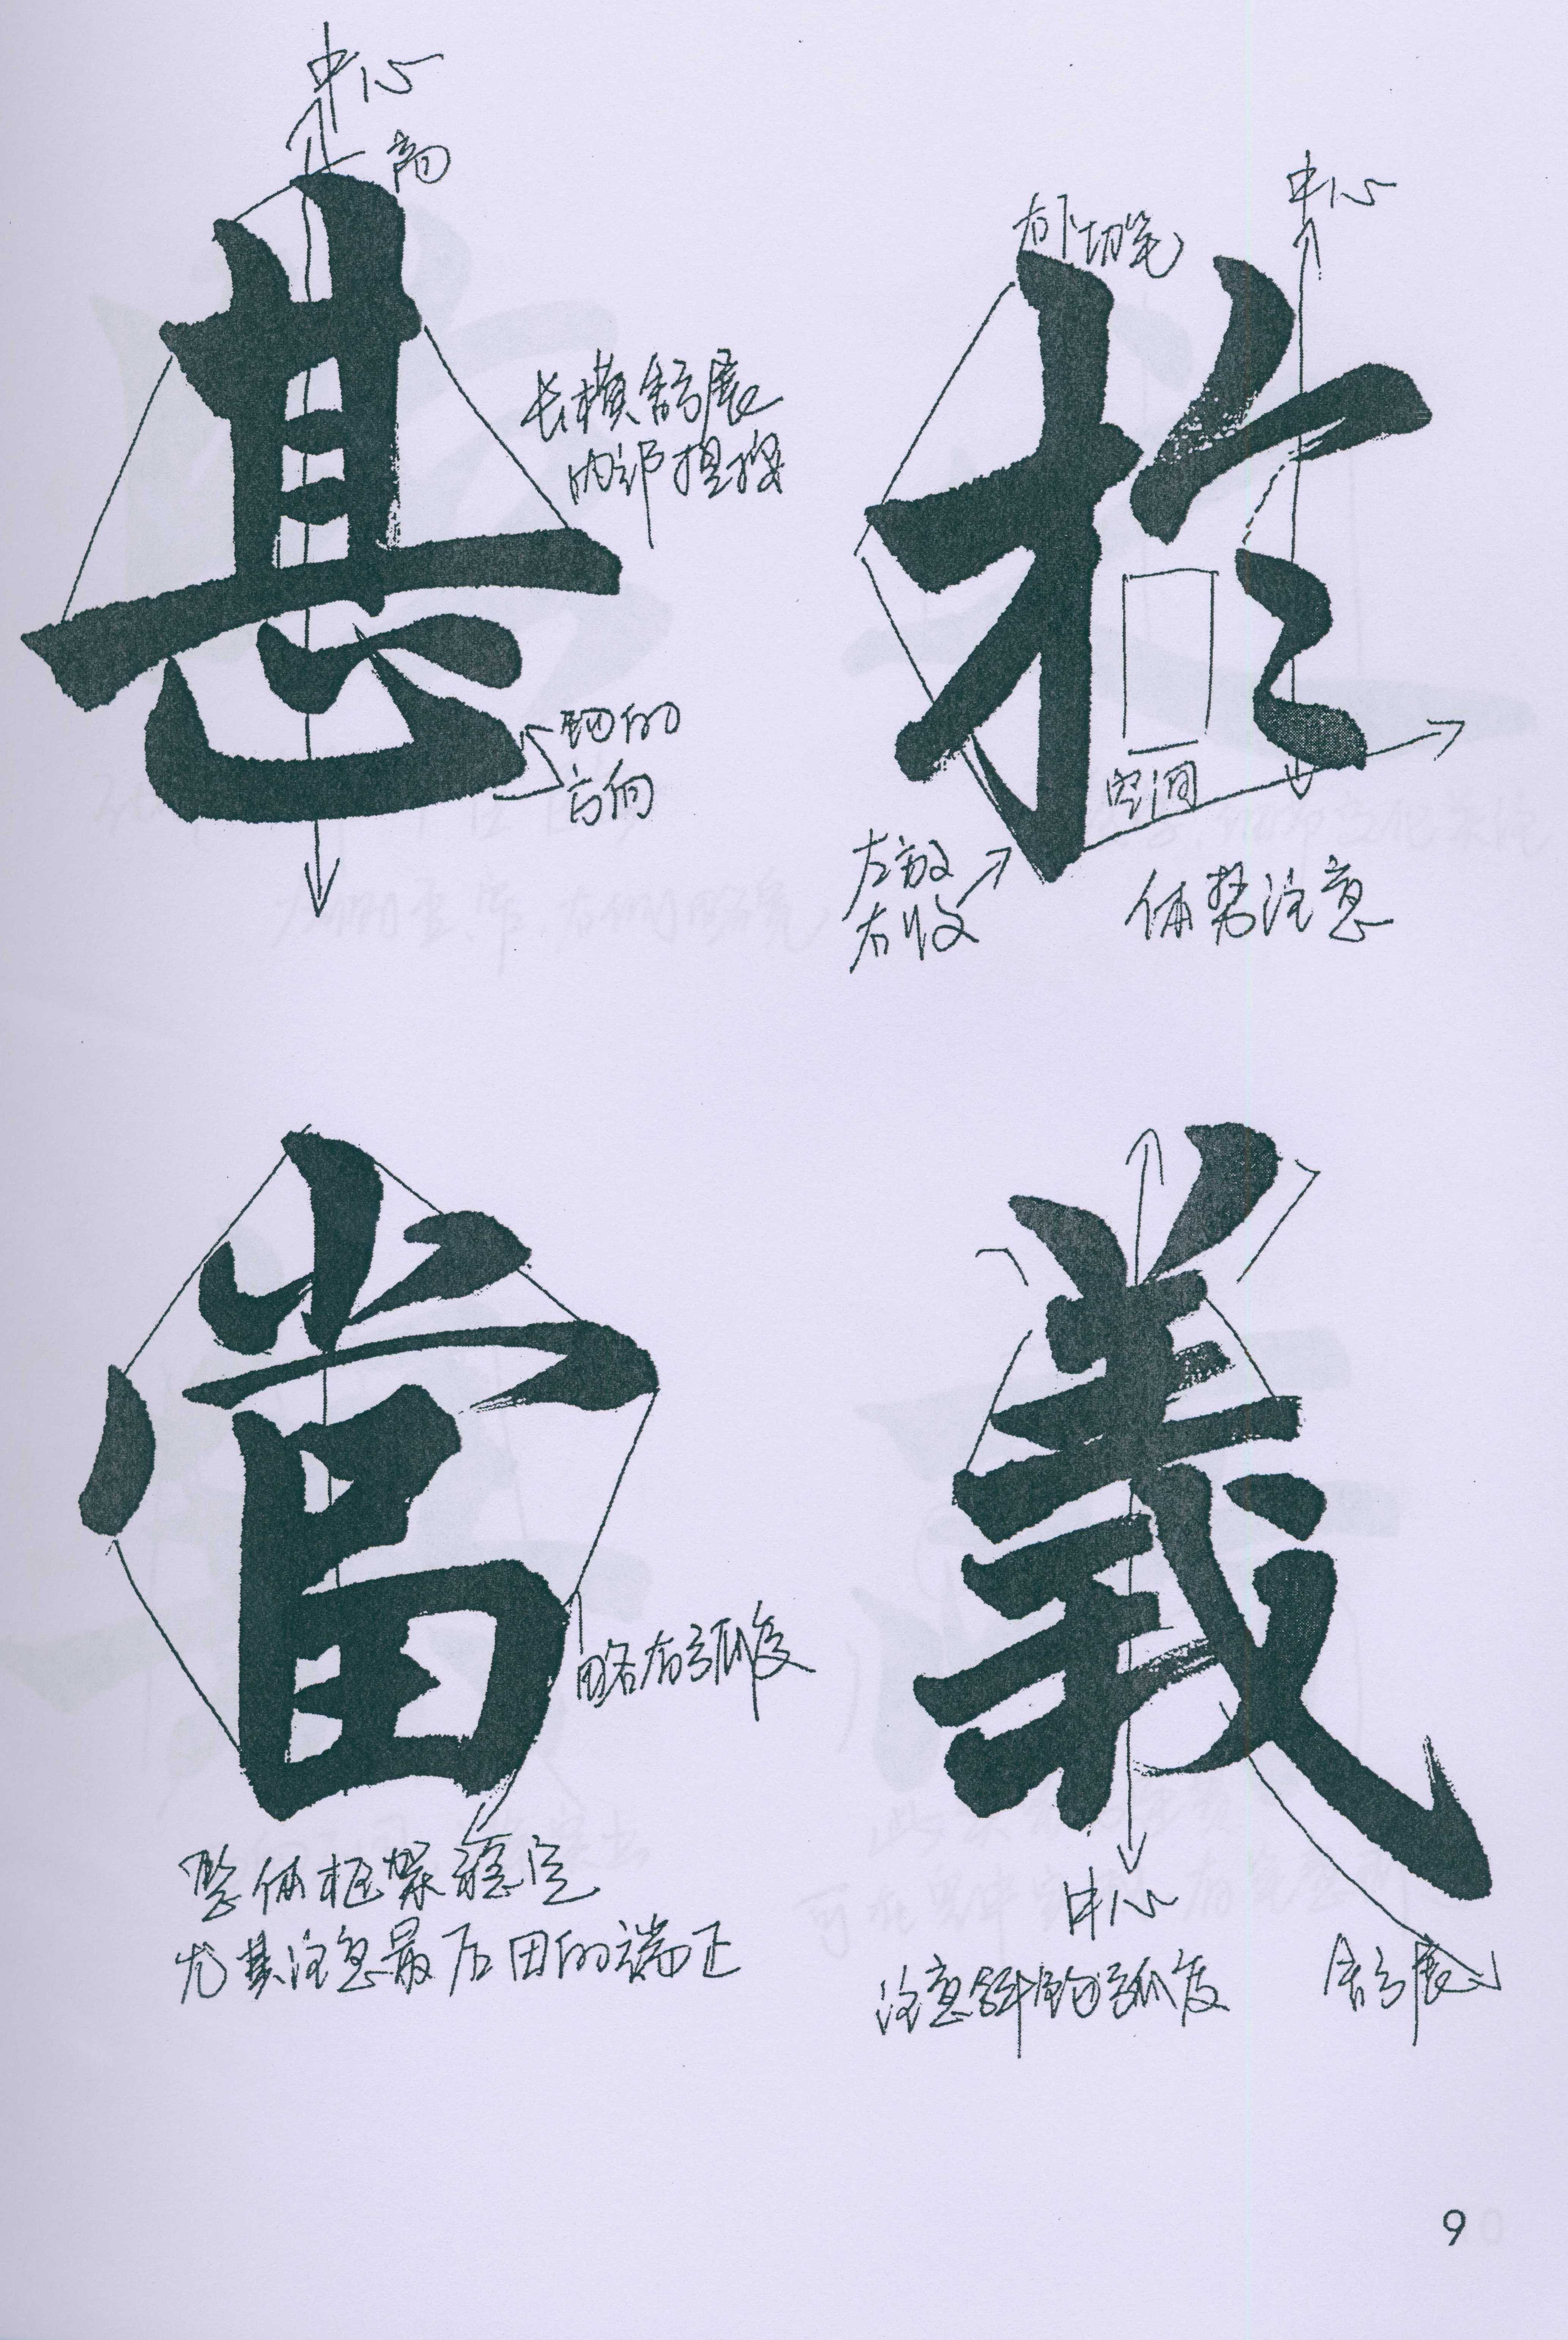 中心
高
甚
长横舒展
内部提按
钩的
方向
中心
右下切笔
於
空间
左放
右收
体势注意
當
略有弧度
整体框架稳定
尤其注意最后田的端正
義
中心
注意斜钩弧度
舒展
9